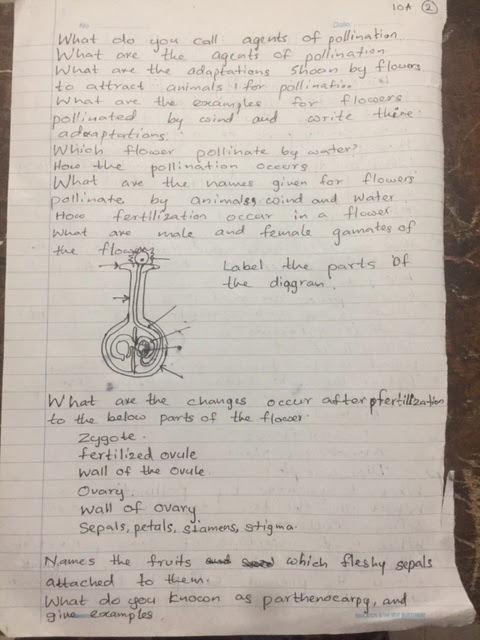 10A 2
No Date
What do you call agents of pollination
What are the agents of pollination
What are the adaptations shoon by flowers
to attract animals for pollination
What are the examples for flowers
pollinated by wind and write there
adeaptations.
Which flower pollinate by water?
How the pollination occurs
What are the names given for flowers
pollinate by animals, wind and water
How fertilization occur in a flower
What are male and female gamates of
the flower
Label the parts of
the diagran.
What are the changes occur after pfertilization
to the below parts of the flower.
Zygote.
fertilized ovule
wall of the ovule
Ovary.
wall of ovary
Sepals, petals, stamens, stigma.
Names the fruits which fleshy sepals
attached to them.
What do you known as parthenocarpy, and
give examples